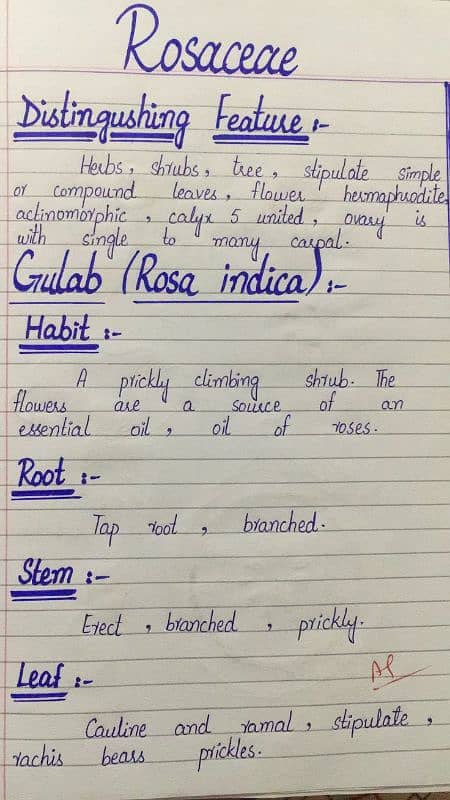 Rosaceae
Distingushing Feature :-
Herbs, shrubs, tree, stipulate simple
or compound leaves, flower hermaphrodite,
actinomorphic, calyx 5 united, ovary is
with single to many carpal.
Gulab (Rosa indica) :-
Habit :-
A prickly climbing shrub. The
flowers are a source of an
essential oil, oil of roses.
Root :-
Tap root, branched.
Stem :-
Erect, branched, prickly.
Leaf :-
Cauline and ramal, stipulate,
rachis bears prickles.